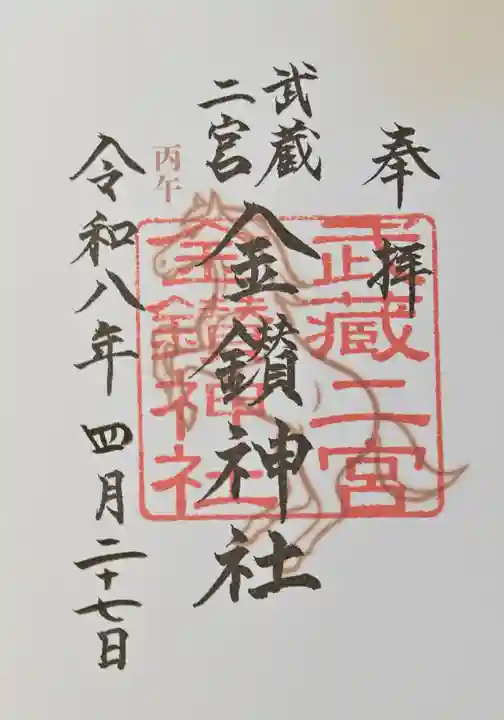 奉拝
武蔵
二宮
金鑚神社
丙午
令和八年四月二十七日
武蔵二宮
金鑚神社